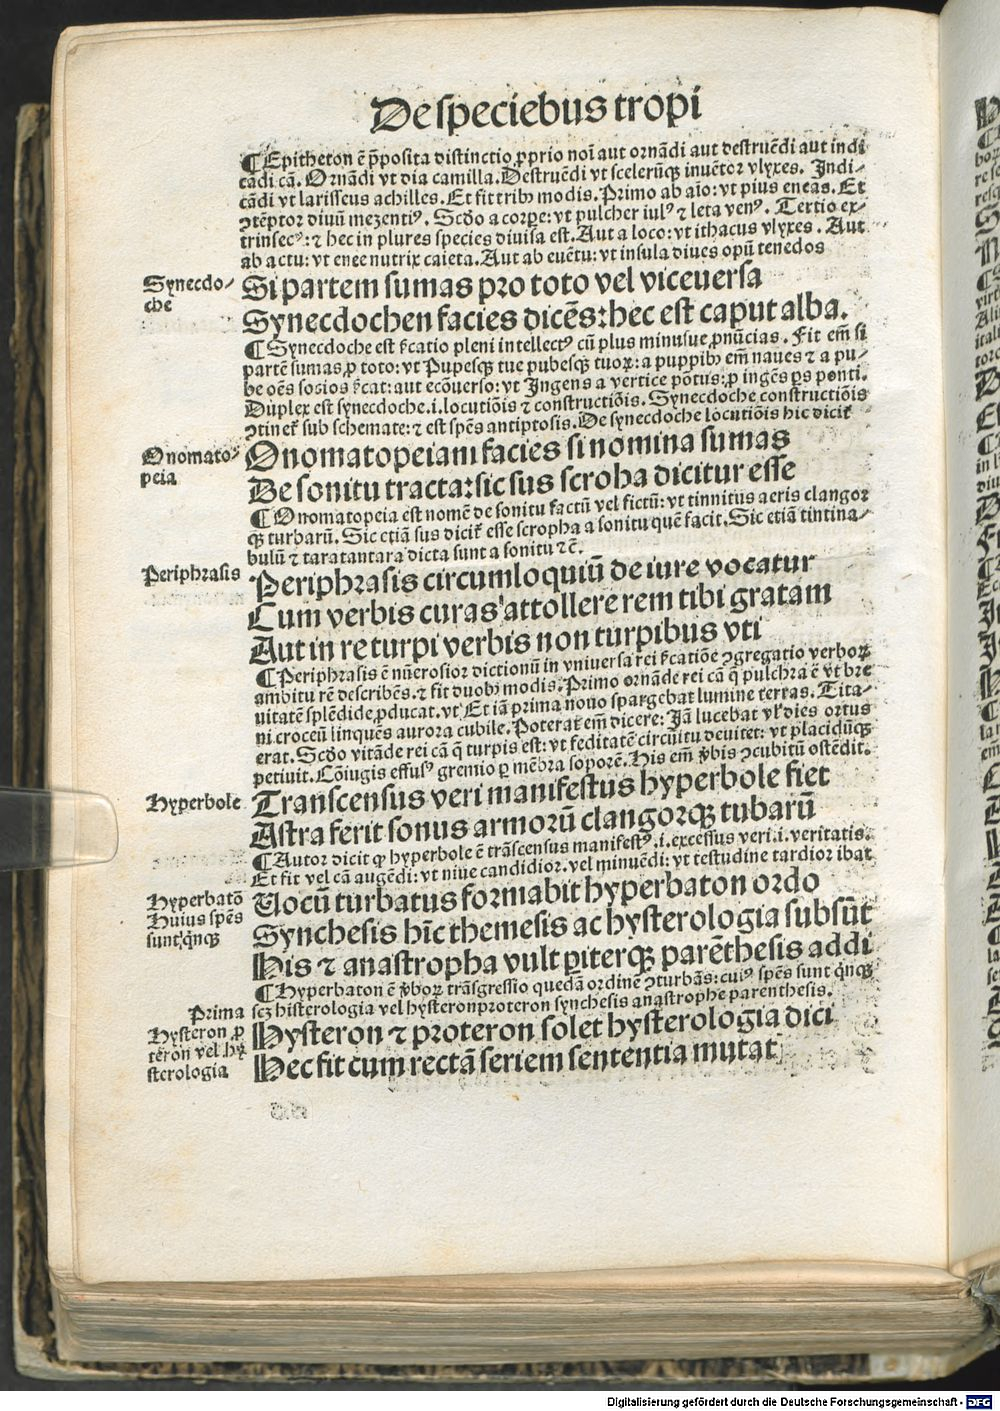 De speciebus tropi
¶ Epitheton ē p̄posita distinctio ꝓprio noī aut ornādi aut destruēdi aut indi
cādi cā. Ornādi vt dia camilla. Destruēdi vt scelerūqꝫ inuētor vlyxes. Indi-
cādi vt larisseus achilles. Et fit tribꝰ modis. Primo ab aīo: vt pius eneas. Et
ꝯtēptor diuū mezentiꝰ. Scdo a corpe: vt pulcher iulꝰ ⁊ leta venꝰ. Tertio ex-
trinsecꝰ: ⁊ hec in plures species diuisa est. Aut a loco: vt ithacus vlyxes. Aut
ab actu: vt enee nutrix caieta. Aut ab euētu: vt insula diues opū tenedos
Synecdo-
che
Si partem sumas pro toto vel viceuersa
Synecdochen facies dicēs: hec est caput alba.
¶ Synecdoche est sꝛ̄catio pleni intellectꝰ cū plus minusue pnūcias. Fit em̄ si
partē sumas ꝓ toto: vt Pupesqꝫ tue pubesqꝫ tuoꝝ: a puppibꝰ em̄ naues ⁊ a pu-
be oēs socios sꝛ̄cat: aut ecōuerso: vt Ingens a vertice pōtus: ꝓ ingēs ꝑs ponti.
Duplex est synecdoche .i. locutiōis ⁊ constructiōis. Synecdoche constructiōis
ꝯtinetᷣ sub schemate: ⁊ est spēs antiptosis. De synecdoche locutiōis hic dicitᷣ
Onomato-
peia
Onomatopeiam facies si nomina sumas
De sonitu tracta: sic sus scroba dicitur esse
¶ Onomatopeia est nomē de sonitu factū vel fictū: vt tinnitus aeris clangor
qꝫ turbarū. Sic etiā sus dicitᷣ esse scropha a sonitu quē facit. Sic etiā tintina-
bulū ⁊ taratantara dicta sunt a sonitu ⁊c̄.
Periphrasis
Periphrasis circumloquiū de iure vocatur
Cum verbis curas attollere rem tibi gratam
Aut in re turpi verbis non turpibus vti
¶ Periphrasis ē nūerosior dictionū in vniversa rei sꝛ̄catiōe ꝯgregatio verboꝝ
ambitu rē describēs. ⁊ fit duobꝰ modis. Primo ornāde rei cā q̄ pulchra ē vt bre
uitatē splēdide ꝓducat. vt Et iā prima nouo spargebat lumine terras. Tita-
ni croceū linquēs aurora cubile. Poterat em̄ dicere: Iā lucebat vl̓ dies ortus
erat. Scdo vitāde rei cā q̄ turpis est: vt feditatē circuitu deuitet: vt placidūqꝫ
petiuit. Cōiugis effusꝰ gremio ꝑ mēbra soporē. His em̄ v̓bis ꝯcubitū ostēdit.
Hyperbole
Transcensus veri manifestus hyperbole fiet
Astra ferit sonus armorū clangorqꝫ tubarū
¶ Autor dicit ꝙ hyperbole ē trāscensus manifestꝰ .i. excessus veri .i. veritatis.
Et fit vel cā augēdi: vt niue candidior. vel minuēdi: vt testudine tardior ibat
Hyperbatō
Huius spēs
sunt q̓nqꝫ
Uocū turbatus formabit hyperbaton ordo
Synchesis hīc themesis ac hysterologia subsūt
His ⁊ anastropha vult ꝑiterqꝫ parēthesis addi
¶ Hyperbaton ē v̓boꝝ trāsgressio quedā ordinē ꝯturbās: cuiꝰ spēs sunt q̓nqꝫ
scꝫ histerologia vel hysteronproteron synchesis anastrophe parenthesis.
Prima
Hysteron ꝓ
terōn vel hy
sterologia
Hysteron ⁊ proteron solet hysterologia dici
Hec fit cum rectā seriem sententia mutat
Digitalisierung gefördert durch die Deutsche Forschungsgemeinschaft - DFG